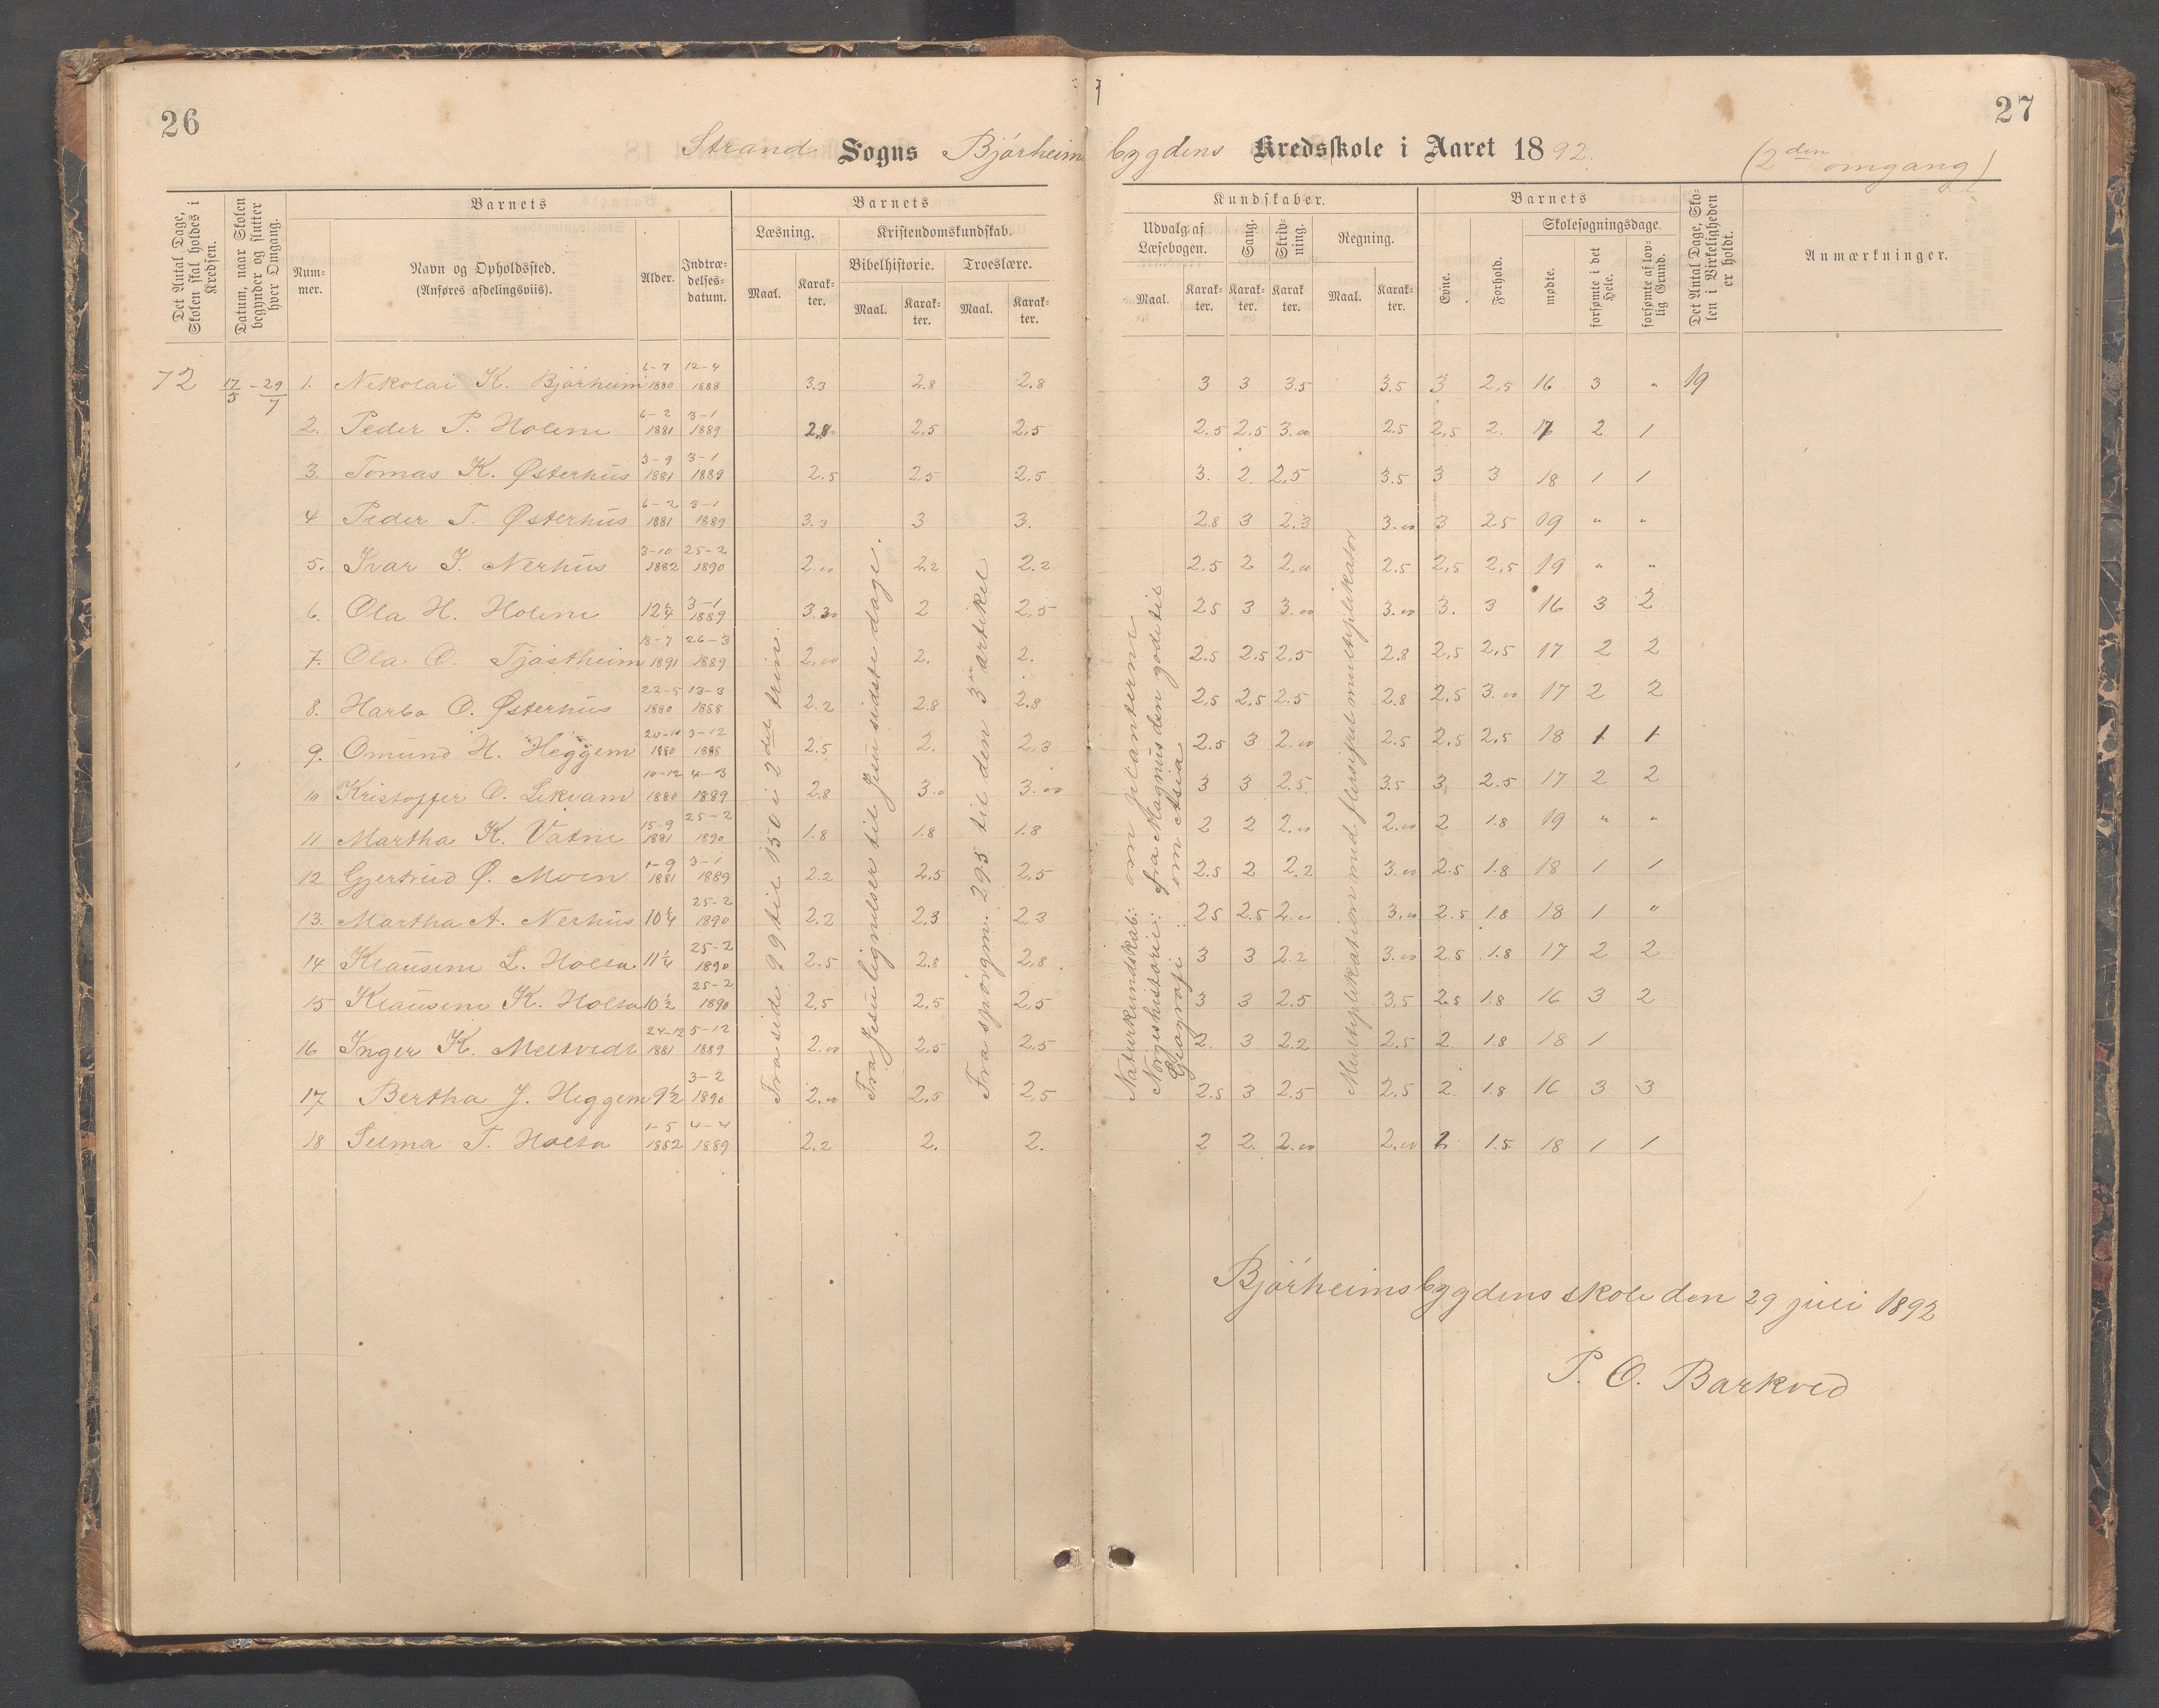 26
27
Strand Sogns Bjørheim bygdens Kredsskole i Aaret 1892. (2den omgang)
Det Antal Dage, Skolen skal holdes i Kredsen.
Datum, naar Skolen begynder og slutter hver Omgang.
Barnets
Num-mer.
Navn og Opholdssted.
(Anføres afdelingsviis).
Alder.
Indtræ-delses-datum.
Barnets
Læsning.
Maal.
Karak-ter.
Kristendomskundskab.
Bibelhistorie.
Maal.
Karak-ter.
Troeslære.
Maal.
Karak-ter.
Kundskaber.
Udvalg af Læsebogen.
Maal.
Karak-ter.
Sang.
Karak-ter.
Skriv-ning.
Karak ter.
Regning.
Maal.
Karak-ter.
Barnets
Evne.
Forhold.
Skolesøgningsdage.
mødte.
forsømte i det Hele.
forsømte af lov-lig Grund.
Det Antal Dage, Sko-len i Virkeligheden er holdt.
Anmærkninger.
72 17/5 - 29/7 1. Nekolai K. Bjørheim 6-7 1880 12-4 1888 3.3 2.8 2.8 3 3 3.5 3.5 3 2,5 16 3 " 19
2. Peder P. Holene 6-2 1881 3-1 1889 2,8 2,5 2,5 2.5 2,5 3.00 2.5 2,5 2. 17 2 1
3. Tomas K. Østerhus 3-9 1881 3-1 1889 2.5 2,5 2.5 3. 2. 2,5 3.5 3 3 18 1 1
4 Peder T. Østerhus 6-2 1881 3-1 1889 3.3 3 3. 2.8 3 2.3 3.00 3 2.5 19 " "
5. Ivar I. Nerhus 3-10 1882 25-2 1890 2.00 2.2 2.2 2,5 2 2,00 2.5 2,5 2,5 19 " "
6. Ola H. Holene 12 1/4 3-1 1889 3.00 2 2,5 2.5 3 3.00 3.00 3. 3 16 3 2
7. Ola O. Tjøstheim 18-7 1891 26-3 1889 2,00 2. 2. 2.5 2.5 2,5 2.8 2,5 2,5 17 2 2
8. Harbo O. Østerhus 22-5 1880 13-3 1888 2.2 2.8 2.8 2,5 2,5 2.5 2.8 2.5 3.00 17 2 2
9. Omund H. Heggem 20-10 1880 3-12 1888 2.5 2. 2,3 2.5 3 2.00 2.5 2,5 2,5 18 1 1
10 Kristoffer O. Lekvam 10-12 1880 4-3 1889 2.8 3.0 3.00 3 3 2.5 3.5 3 2.5 17 2 2
11 Martha K. Vatne 15-9 1881 25-2 1890 1.8 1.8 1.8 2 2 2.00 2.00 2 1.8 19 " "
12 Gjertrud Ø. Moen 1-9 1881 3-1 1889 2.2 2.5 2,5 2.5 2 2.2 3.00 2.5 1.8 18 1 1
13. Martha A. Nerhus 10 1/4 25-2 1890 2.2 2.3 2,3 2.5 2.5 2.00 3,00 2.5 1.8 18 1 "
14 Klausine L. Holta 11 1/4 25-2 1890 2.5 2.8 2,8 3 3 2.2 3.00 2.5 1.8 17 2 2
15 Klausine K. Holta 10 1/2 25-2 1890 2,5 2,5 2,5 3 3 2.5 3.5 2.5 1.8 16 3 2
16 Inger K. Meltvedt 24-12 1881 5-12 1889 2.00 2.5 2,5 2. 3 2.2 2.5 2. 1.8 18 1
17 Bertha J. Heggem 9 1/2 3-2 1890 2.00 2.5 2,5 2.5 3 2.5 2.5 2. 1.8 16 3 3
18 Selma T. Holta 1-5 1882 4-4 1889 2.2 2. 2. 2 2. 2.00 2.00 2 1.5 18 1 1
Fra side 99 til 150 i 2det trin.
Fra Jesu lignelser til Jesu sidste dage.
Fra spørgm. 295 til den 3die artikel
Naturkundskab: om planterne
Norgeshistorie: fra Magnus den gode til
Geografi: om Asia
Multiplikation med flersifret multiplikator
Bjørheimsbygdens skole den 29 juli 1892
P. O. Barkved